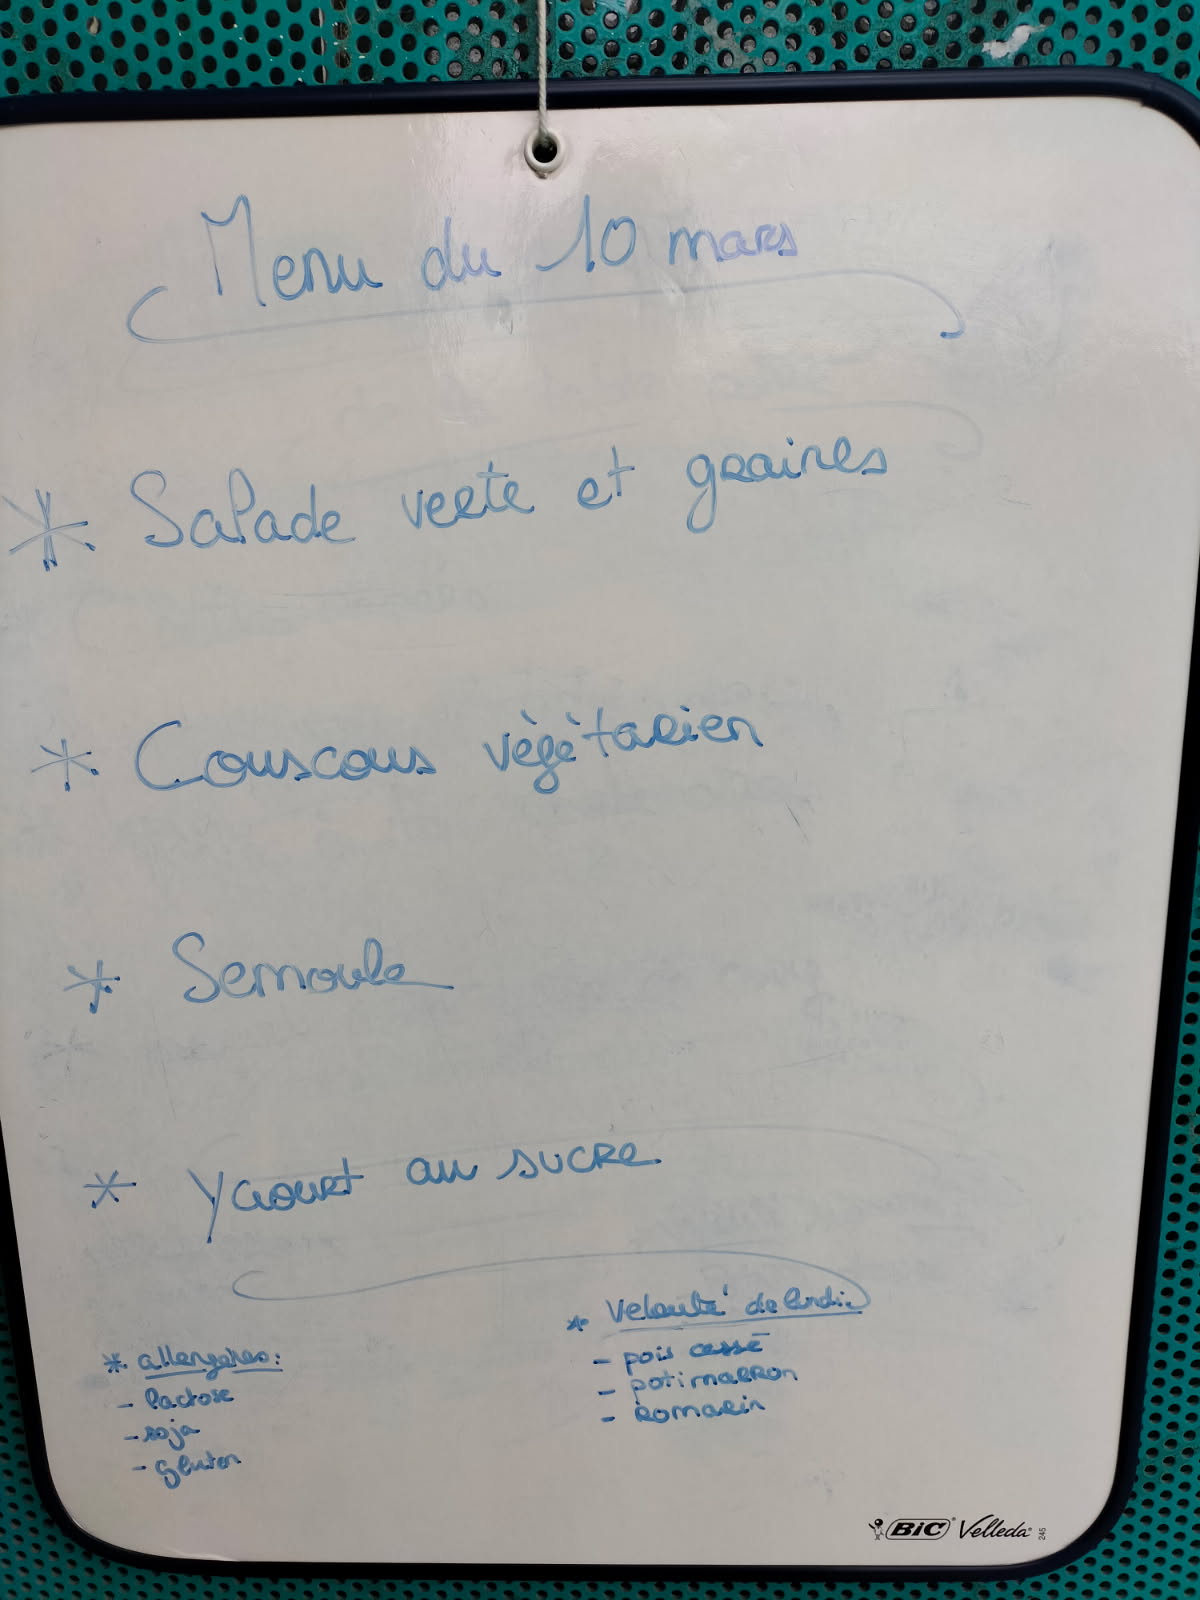 Menu du 10 mars
* Salade verte et graines
* Couscous végétarien
* Semoule
* Yaourt au sucre
* allergènes:
- lactose
- soja
- gluten
* Velouté de lundi
- pois cassé
- potimarron
- romarin
BIC Velleda 245